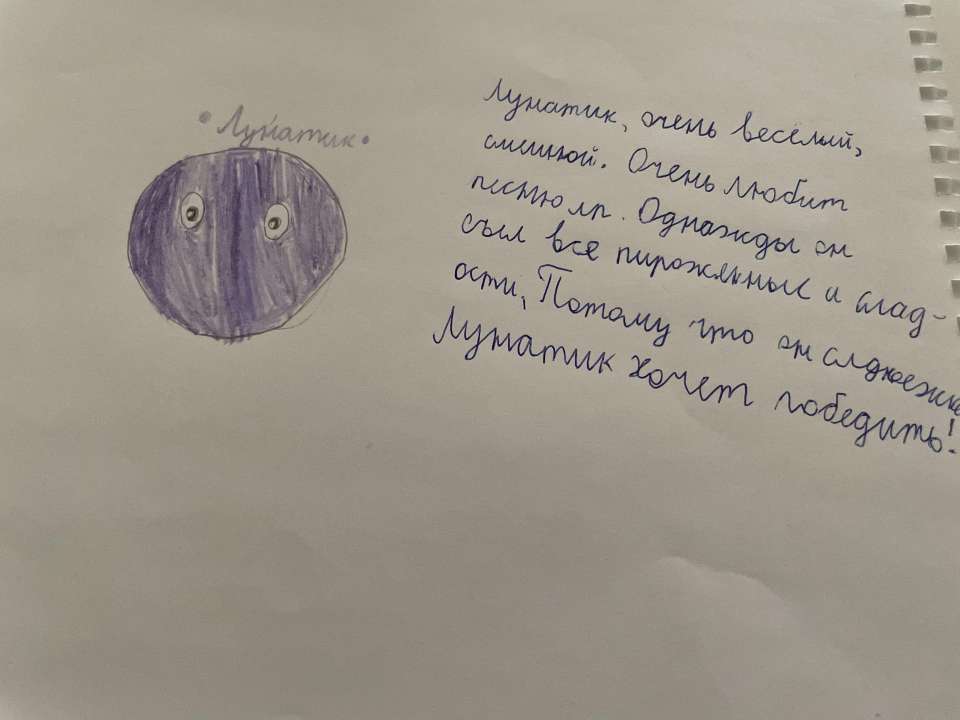 • Лунатик •
Лунатик, очень весёлый,
смешной. Очень любит
песню лп. Однажды он
съел все пироженные и слад-
ости, Потому что он сладкоежка
Лунатик хочет победить!